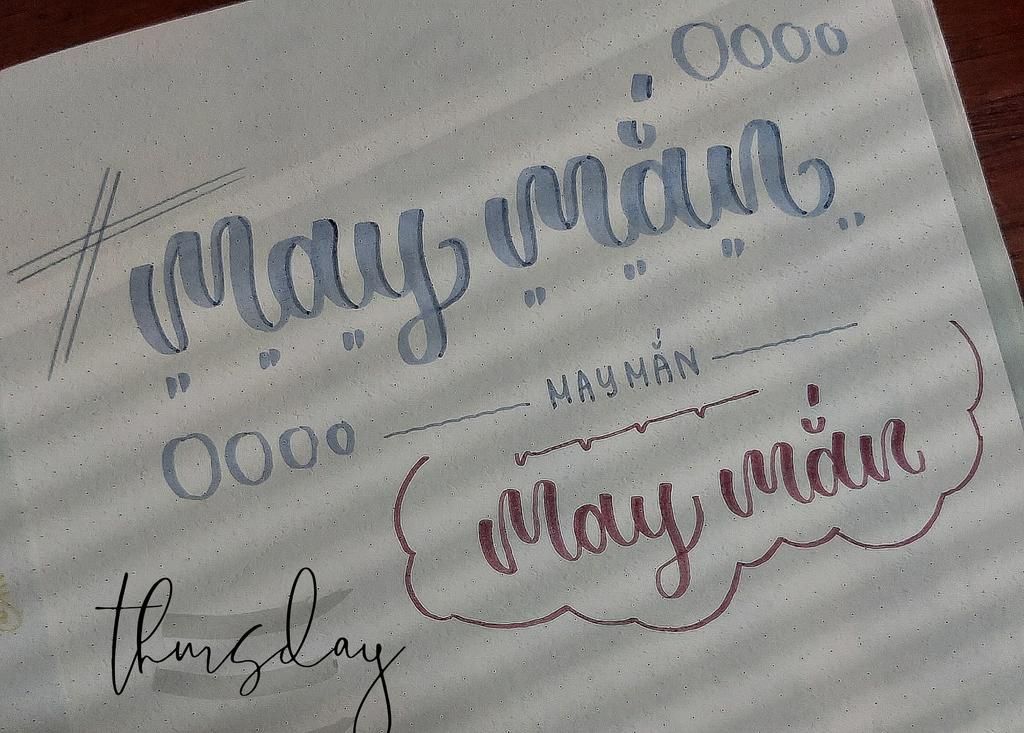 OOOo
May mắn
MAY MẮN
OOOo
May mắn
thursday